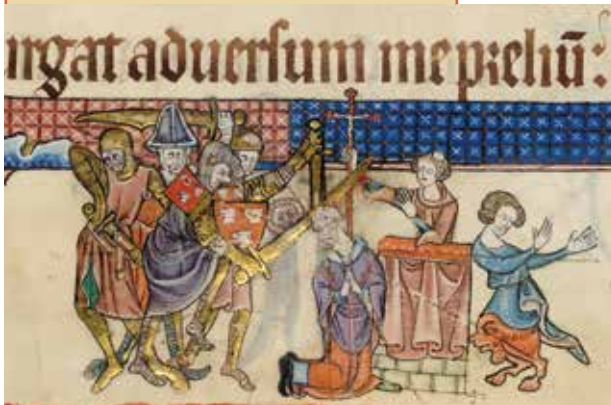 urgat aduersum me preliū: